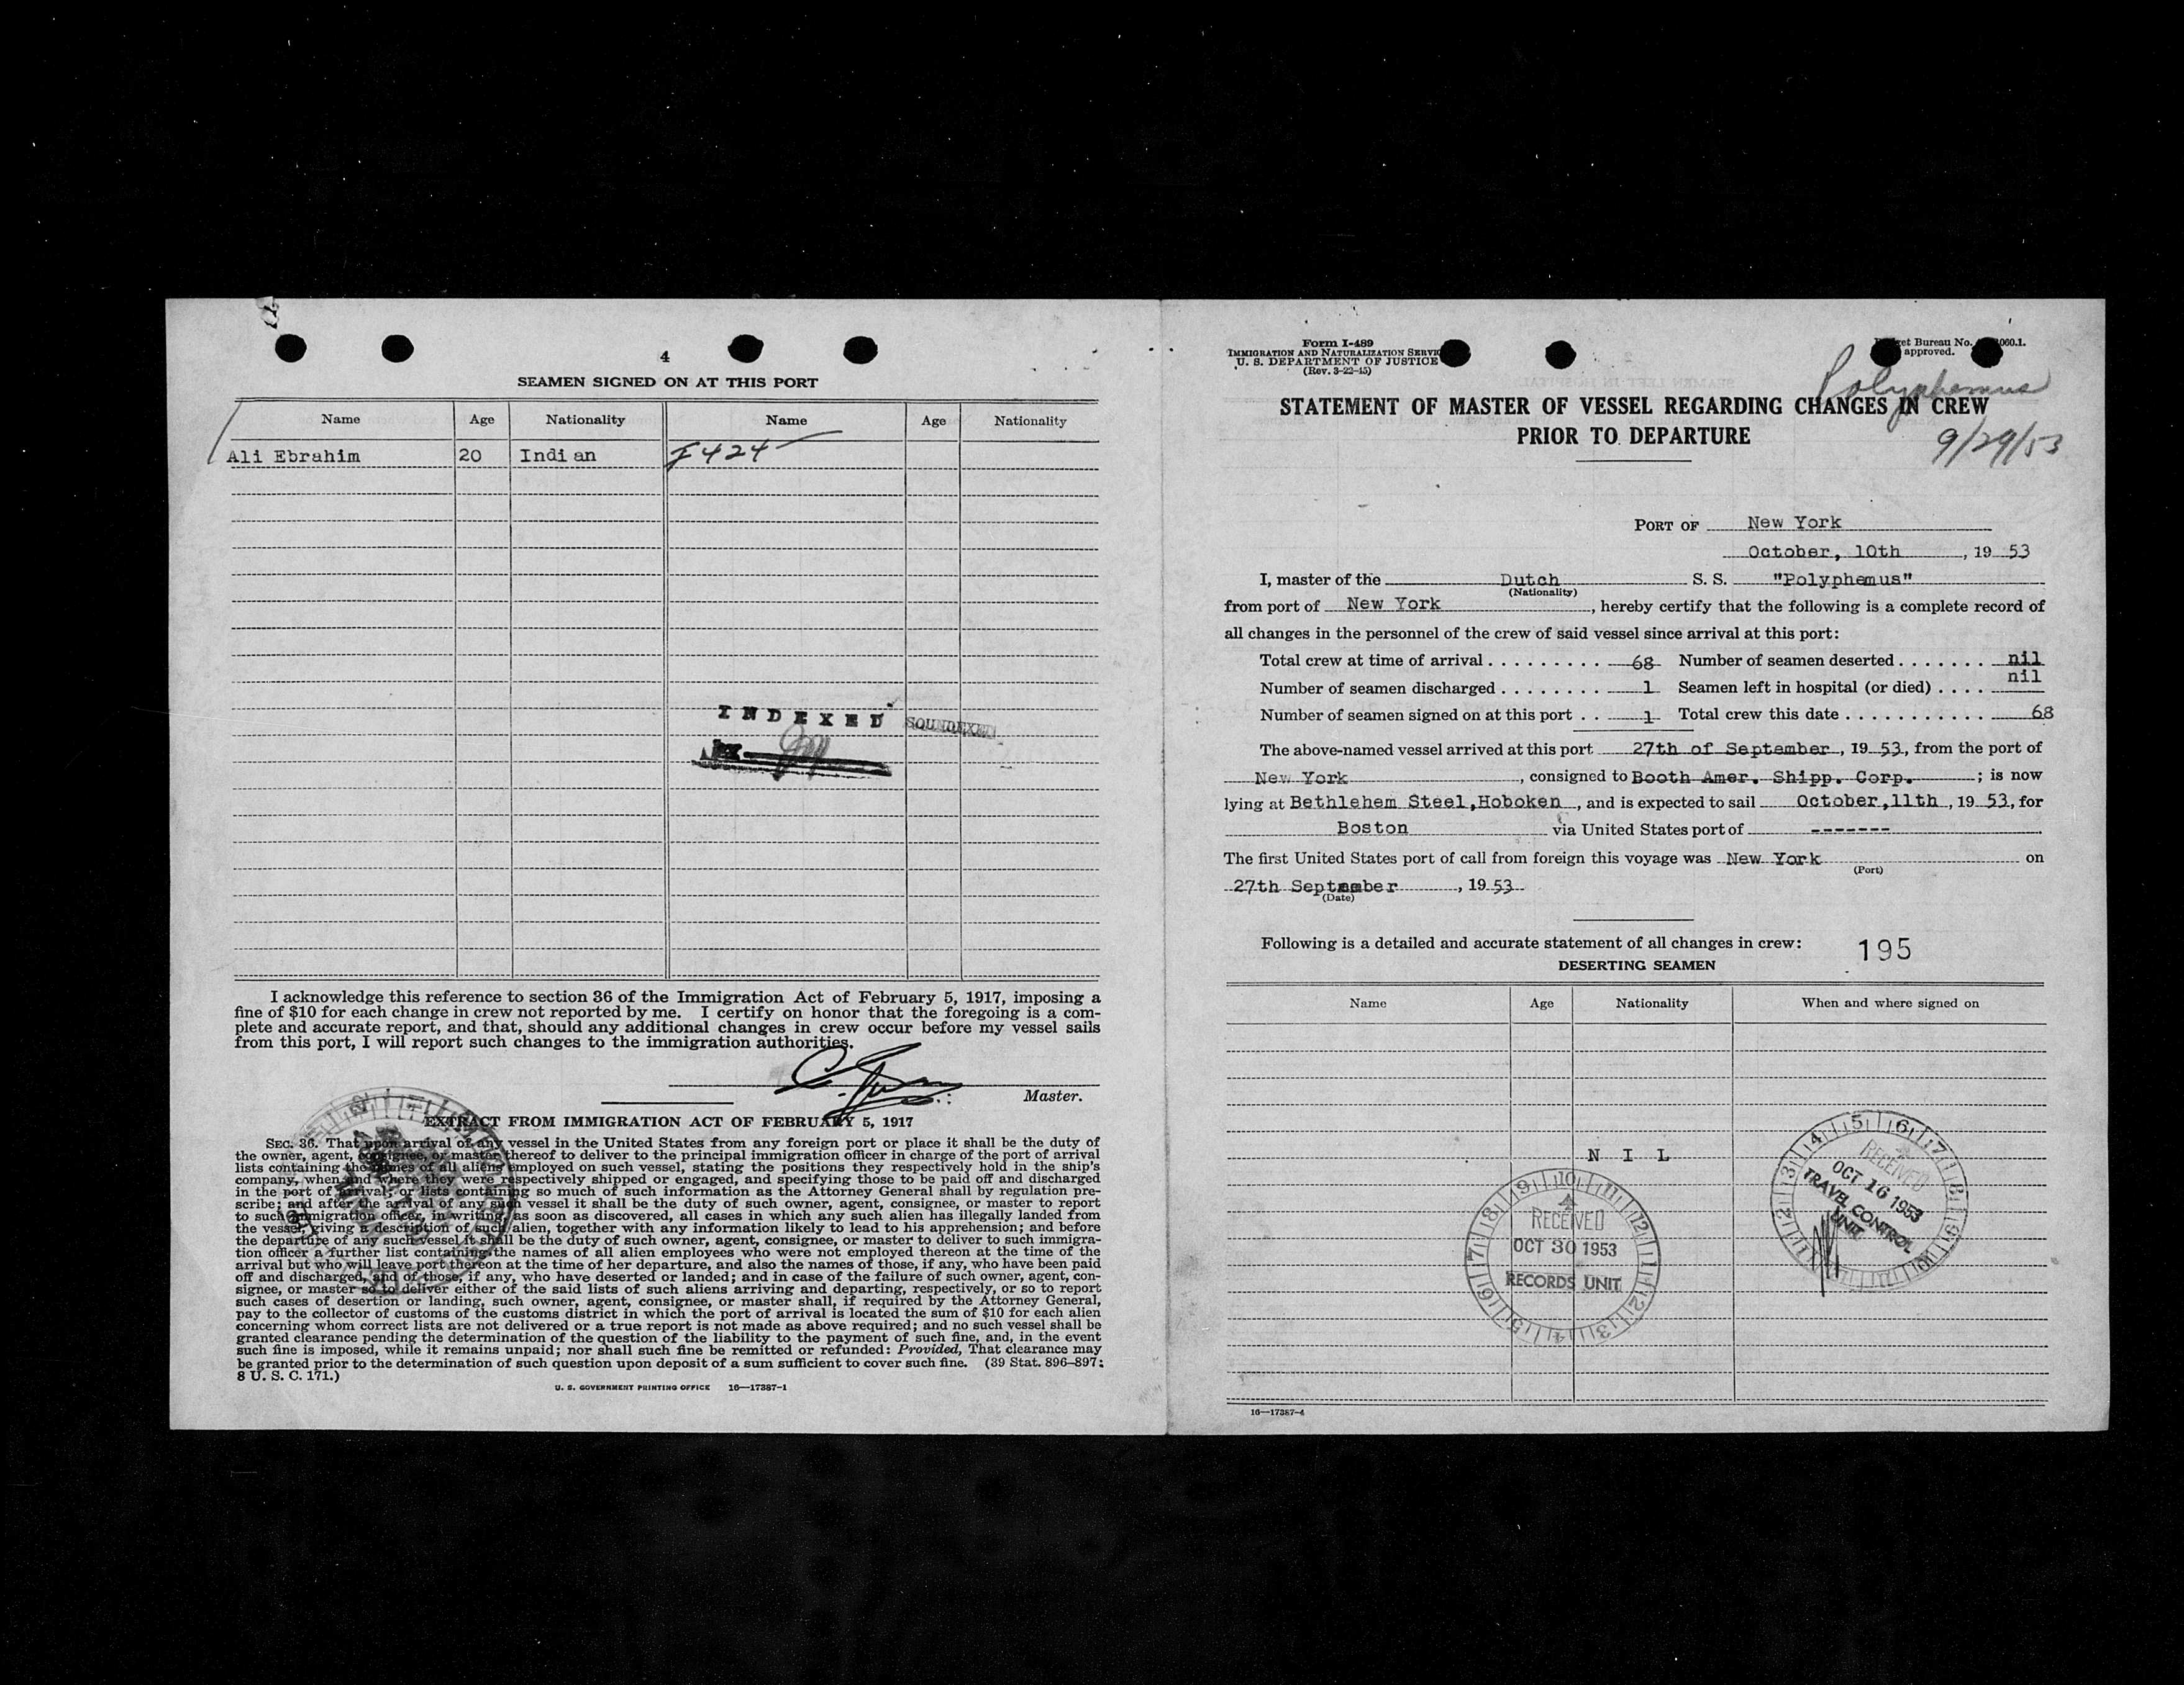 4
SEAMEN SIGNED ON AT THIS PORT
Name Age Nationality Name Age Nationality
Ali Ebrahim 20 Indian F424
INDEXED SOUNDEXED
I acknowledge this reference to section 36 of the Immigration Act of February 5, 1917, imposing a
fine of $10 for each change in crew not reported by me. I certify on honor that the foregoing is a com-
plete and accurate report, and that, should any additional changes in crew occur before my vessel sails
from this port, I will report such changes to the immigration authorities.
Master.
EXTRACT FROM IMMIGRATION ACT OF FEBRUARY 5, 1917
SEC. 36. That upon arrival of any vessel in the United States from any foreign port or place it shall be the duty of
the owner, agent, consignee, or master thereof to deliver to the principal immigration officer in charge of the port of arrival
lists containing the names of all aliens employed on such vessel, stating the positions they respectively hold in the ship's
company, when and where they were respectively shipped or engaged, and specifying those to be paid off and discharged
in the port of arrival; or lists containing so much of such information as the Attorney General shall by regulation pre-
scribe; and after the arrival of any such vessel it shall be the duty of such owner, agent, consignee, or master to report
to such immigration officer, in writing, as soon as discovered, all cases in which any such alien has illegally landed from
the vessel, giving a description of such alien, together with any information likely to lead to his apprehension; and before
the departure of any such vessel it shall be the duty of such owner, agent, consignee, or master to deliver to such immigra-
tion officer a further list containing the names of all alien employees who were not employed thereon at the time of the
arrival but who will leave port thereon at the time of her departure, and also the names of those, if any, who have been paid
off and discharged, and of those, if any, who have deserted or landed; and in case of the failure of such owner, agent, con-
signee, or master so to deliver either of the said lists of such aliens arriving and departing, respectively, or so to report
such cases of desertion or landing, such owner, agent, consignee, or master shall, if required by the Attorney General,
pay to the collector of customs of the customs district in which the port of arrival is located the sum of $10 for each alien
concerning whom correct lists are not delivered or a true report is not made as above required; and no such vessel shall be
granted clearance pending the determination of the question of the liability to the payment of such fine, and, in the event
such fine is imposed, while it remains unpaid; nor shall such fine be remitted or refunded: Provided, That clearance may
be granted prior to the determination of such question upon deposit of a sum sufficient to cover such fine. (39 Stat. 896–897;
8 U. S. C. 171.)
U. S. GOVERNMENT PRINTING OFFICE 16—17387-1
Form I-489
IMMIGRATION AND NATURALIZATION
U. S. DEPARTMENT OF JUSTICE
(Rev. 3-22-45)
Bureau No.
approved.
Polyphemus
STATEMENT OF MASTER OF VESSEL REGARDING CHANGES IN CREW
PRIOR TO DEPARTURE
9/29/53
PORT OF New York
October, 10th, 19 53
I, master of the Dutch S. S. "Polyphemus"
(Nationality)
from port of New York, hereby certify that the following is a complete record of
all changes in the personnel of the crew of said vessel since arrival at this port:
Total crew at time of arrival . . . . . . . . . 68 Number of seamen deserted . . . . . . . nil
Number of seamen discharged . . . . . . . . 1 Seamen left in hospital (or died) . . . . nil
Number of seamen signed on at this port . . 1 Total crew this date . . . . . . . . . . . . 68
The above-named vessel arrived at this port 27th of September, 19 53, from the port of
New York, consigned to Booth Amer. Shipp. Corp. ; is now
lying at Bethlehem Steel,Hoboken, and is expected to sail October,11th, 19 53, for
Boston via United States port of -------
The first United States port of call from foreign this voyage was New York on
(Port)
27th September, 19 53
(Date)
Following is a detailed and accurate statement of all changes in crew: 195
DESERTING SEAMEN
Name Age Nationality When and where signed on
N I L
RECEIVED
OCT 16 1953
TRAVEL CONTROL
UNIT
RECEIVED
OCT 30 1953
RECORDS UNIT
16—17387-4